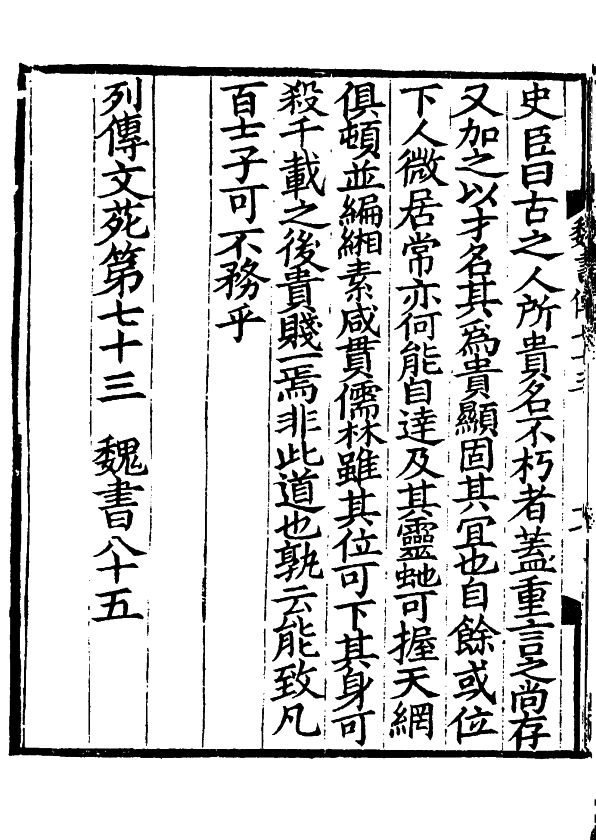 史臣曰古之人所貴名不朽者蓋重言之尚存
又加之以才名其爲貴顯固其宜也自餘或位
下人微居常亦何能自達及其靈虵可握天網
俱頓並編緗素咸貫儒林雖其位可下其身可
殺千載之後貴賤一焉非此道也孰云能致凡
百士子可不務乎
列傳文苑第七十三　魏書八十五